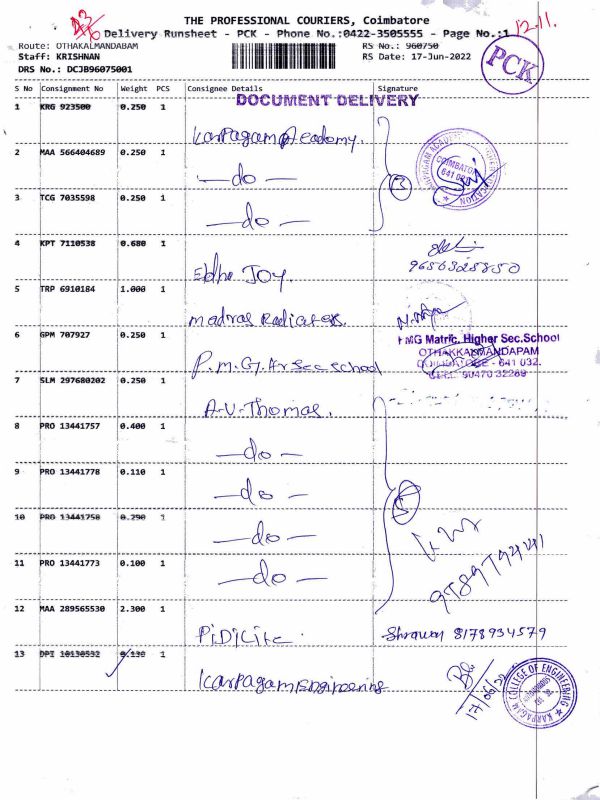 THE PROFESSIONAL COURIERS, Coimbatore
Delivery Runsheet - PCK - Phone No.:0422-3505555 - Page No.:1
12.11.
Route: OTHAKALMANDABAM
RS No.: 960750
Staff: KRISHNAN
RS Date: 17-Jun-2022
DRS No.: DCJB96075001
PCK
S No Consignment No Weight PCS Consignee Details Signature
DOCUMENT DELIVERY
1 KRG 923500 0.250 1
Karpagam Academy.
2 MAA 566404689 0.250 1
— do —
3 TCG 7035598 0.250 1
— do —
COIMBATORE
641 021
4 KPT 7110538 0.680 1
Eldho Joy.
9656325850
5 TRP 6910184 1.000 1
Madras Radiators.
6 GPM 707927 0.250 1
P.M.G. Hr Sec School
PMG Matric. Higher Sec.School
OTHAKKALMANDAPAM
COIMBATORE - 641 032.
CELL: 90470 32269
7 SLM 297680202 0.250 1
A.V. Thomas.
8 PRO 13441757 0.400 1
— do —
9 PRO 13441778 0.110 1
— do —
10 PRO 13441750 0.290 1
— do —
11 PRO 13441773 0.100 1
— do —
12 MAA 289565530 2.300 1
PiDiLite.
Shrawan 8178934579
13 DPI 10130532 0.130 1
Karpagam Engineering
17/06/22
KARPAGAM COLLEGE OF ENGINEERING